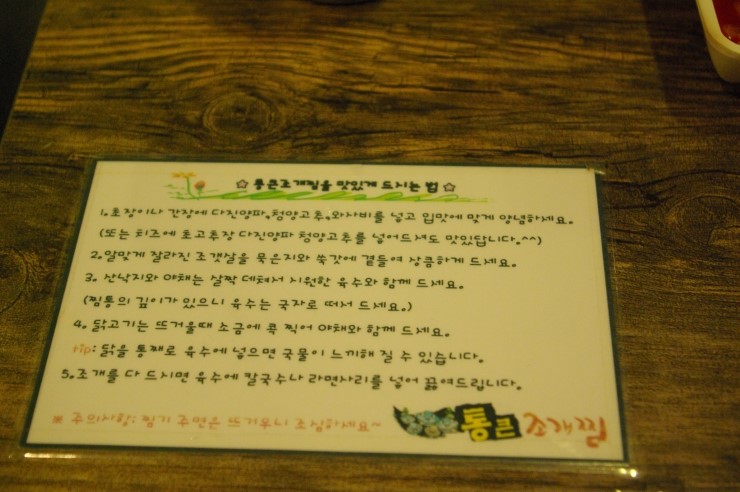 ☆통큰조개찜을 맛있게 드시는 법☆
1. 초장이나 간장에 다진양파,청양고추,와사비를 넣고 입맛에 맞게 양념하세요.
(또는 치즈에 초고추장 다진양파 청양고추를 넣어드셔도 맛있답니다.^^)
2. 알맞게 잘라진 조갯살을 묵은지와 쑥갓에 곁들여 상큼하게 드세요.
3. 산낙지와 야채는 살짝 데쳐서 시원한 육수와 함께 드세요.
(찜통의 깊이가 있으니 육수는 국자로 떠서 드세요.)
4. 닭고기는 뜨거울때 소금에 콕 찍어 야채와 함께 드세요.
tip: 닭을 통째로 육수에 넣으면 국물이 느끼해 질 수 있습니다.
5. 조개를 다 드시면 육수에 칼국수나 라면사리를 넣어 끓여드립니다.
※ 주의사항: 찜기 주변은 뜨거우니 조심하세요~
통큰 조개찜